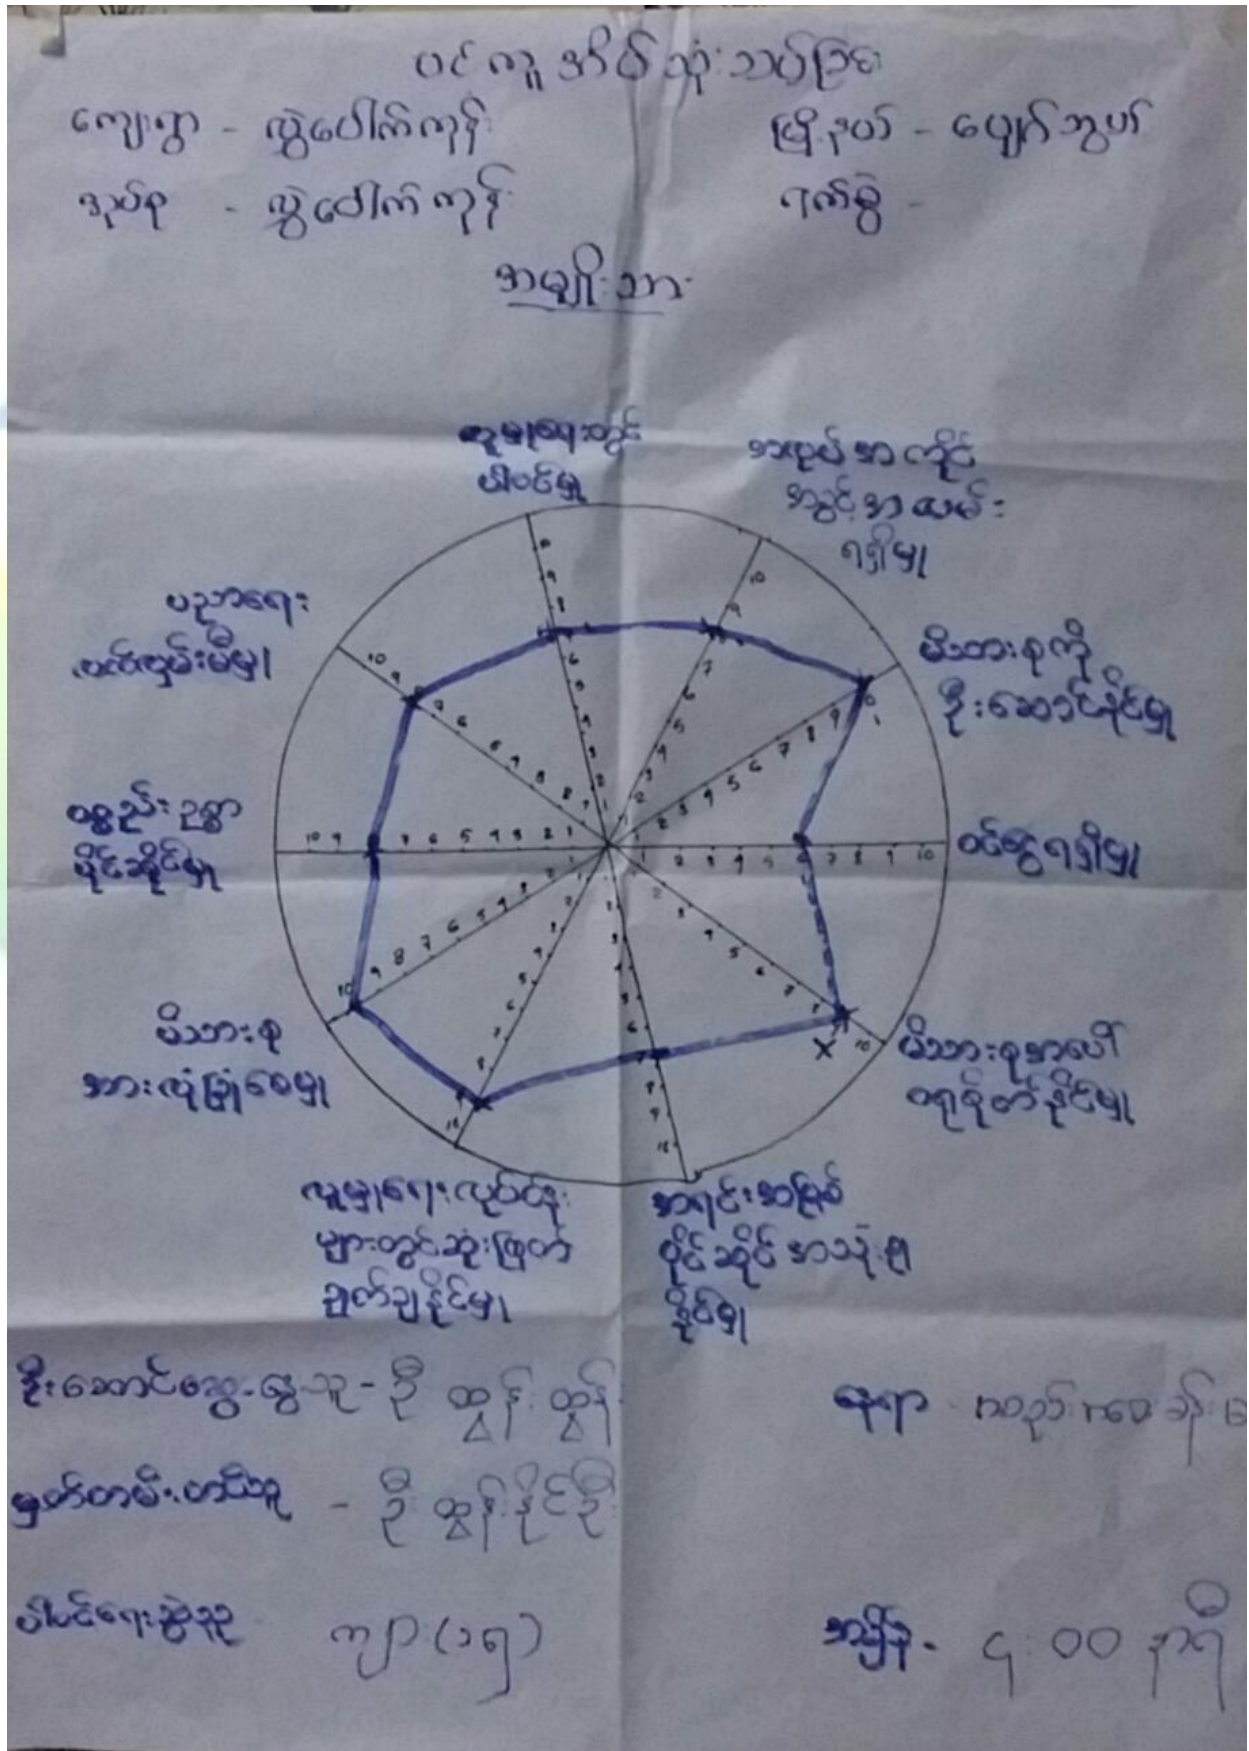 ပင့်ကူအိမ်သုံးသပ်ခြင်း
ကျေးရွာ - လွှဲပေါက်ကုန်း
မြို့နယ် - ဖျာပုံ
အုပ်စု - လွှဲပေါက်ကုန်း
ရက်စွဲ -
အမျိုးသား
လူမှုရေးတွင်
ပါဝင်မှု
အလုပ်အကိုင်
အခွင့်အလမ်း
ရရှိမှု
မိသားစုကို
ဦးဆောင်နိုင်မှု
ဝင်ငွေရရှိမှု
မိသားစုအပေါ်
ဂရုစိုက်နိုင်မှု
အရင်းအမြစ်
ပိုင်ဆိုင်အသုံးချ
နိုင်မှု
လူမှုရေးလုပ်ငန်း
များတွင်ဆုံးဖြတ်
ချက်ချနိုင်မှု
မိသားစု
အားလုံခြုံစေမှု
ပစ္စည်းဥစ္စာ
ပိုင်ဆိုင်မှု
ပညာရေး
လက်လှမ်းမီမှု
ဦးဆောင်ဆွေးနွေးသူ - ဦးထွန်းထွန်း
နေရာ
မှတ်တမ်းတင်သူ - ဦးထွန်းနိုင်ဦး
ပါဝင်ဆွေးနွေးသူ ကျား (၁၅)
အချိန် - ၄:၀၀ နာရီ